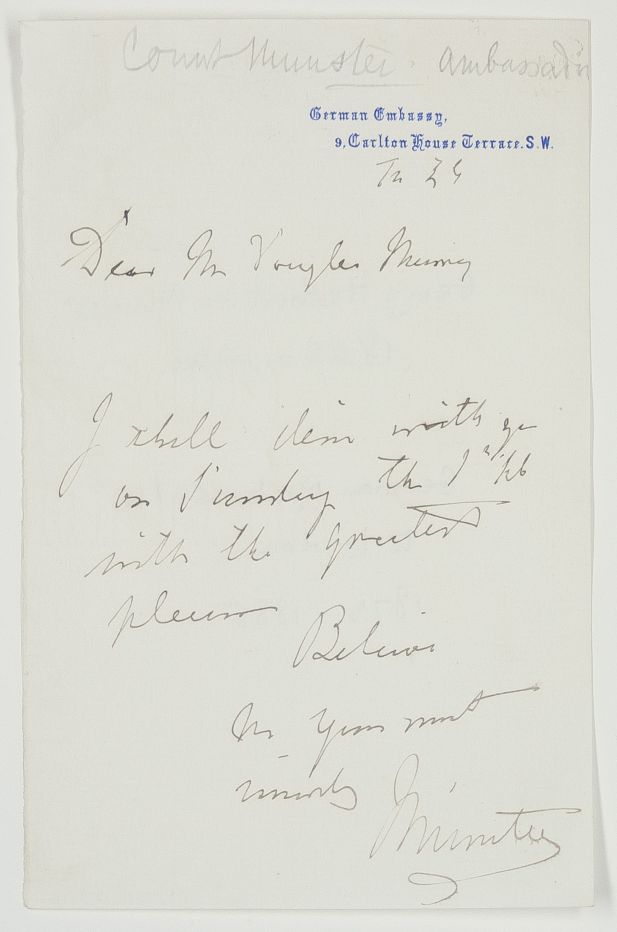 Count Munster. Ambassador
German Embassy,
9, Carlton House Terrace. S.W.
Dear Mr Douglas Murray
I shall dine with you
on Sunday the 1st
with the greatest
pleasure
Believe
me yours most
sincerely
Münster